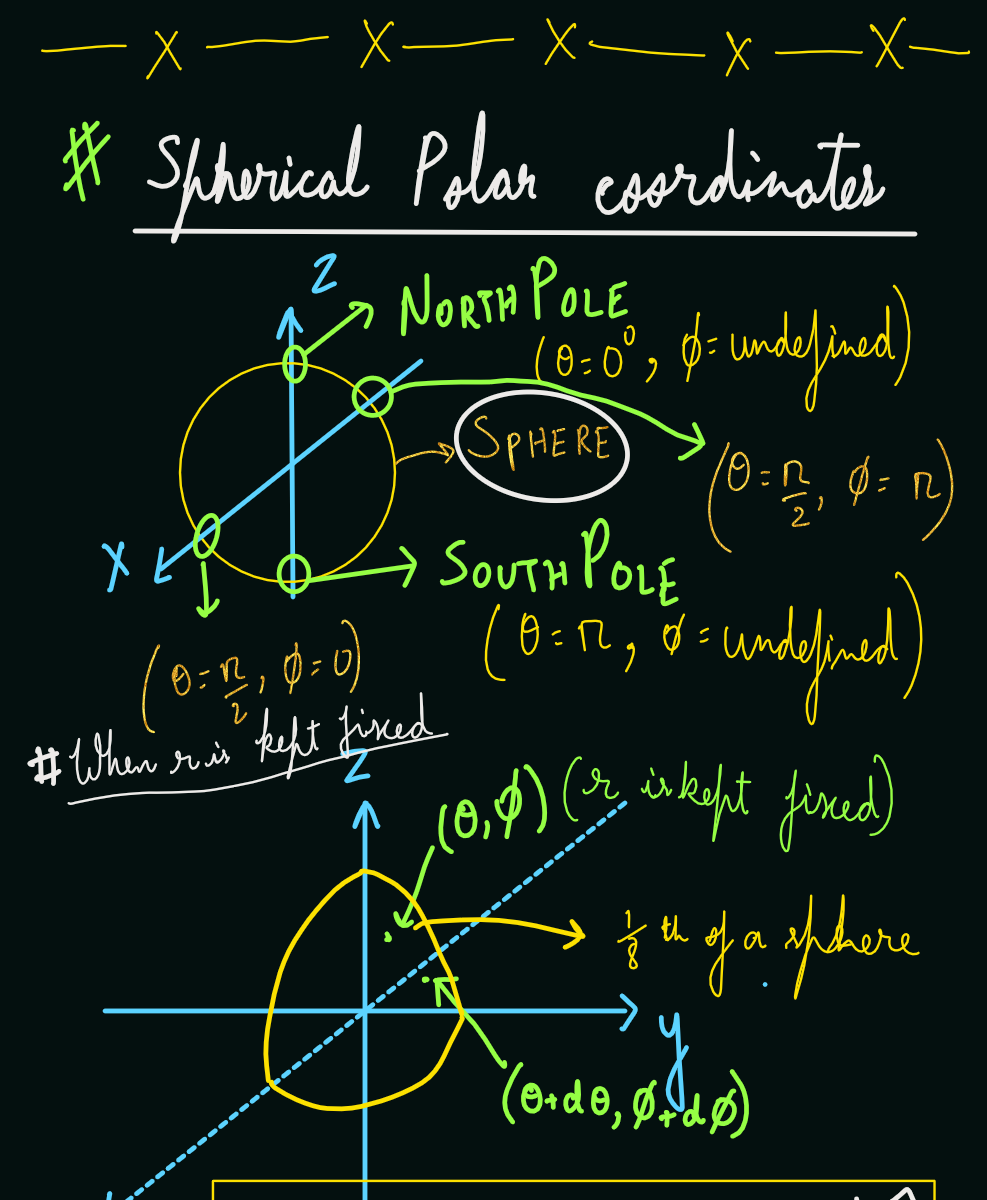 X X X X X
# Spherical Polar coordinates
Z
NORTH POLE
(θ=0⁰, ϕ=undefined)
SPHERE
(θ=π/2, ϕ=π)
X
SOUTH POLE
(θ=π, ϕ=undefined)
(θ=π/2, ϕ=0)
# When r is kept fixed
Z
(θ,ϕ) (r is kept fixed)
1/8 th of a sphere
y
(θ+dθ, ϕ+dϕ)